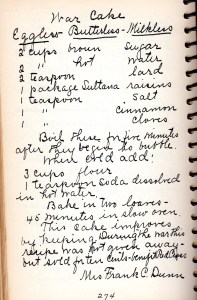 War Cake
Eggless - Butterless - Milkless
2 cups brown Sugar
2 " hot Water
2 teaspoon lard
1 package Sultana raisins
1 teaspoon salt
1 " cinnamon
1 " cloves
Boil these for five minutes
after they begin to bubble.
When cold add:
3 cups flour
1 teaspoon Soda dissolved
in hot water.
Bake in two loaves -
45 minutes in slow oven.
This cake improves
by keeping. During the war this
recipe was not given away -
but sold for ten cents - benefit Red Cross
Mrs Frank C. Dunn
274